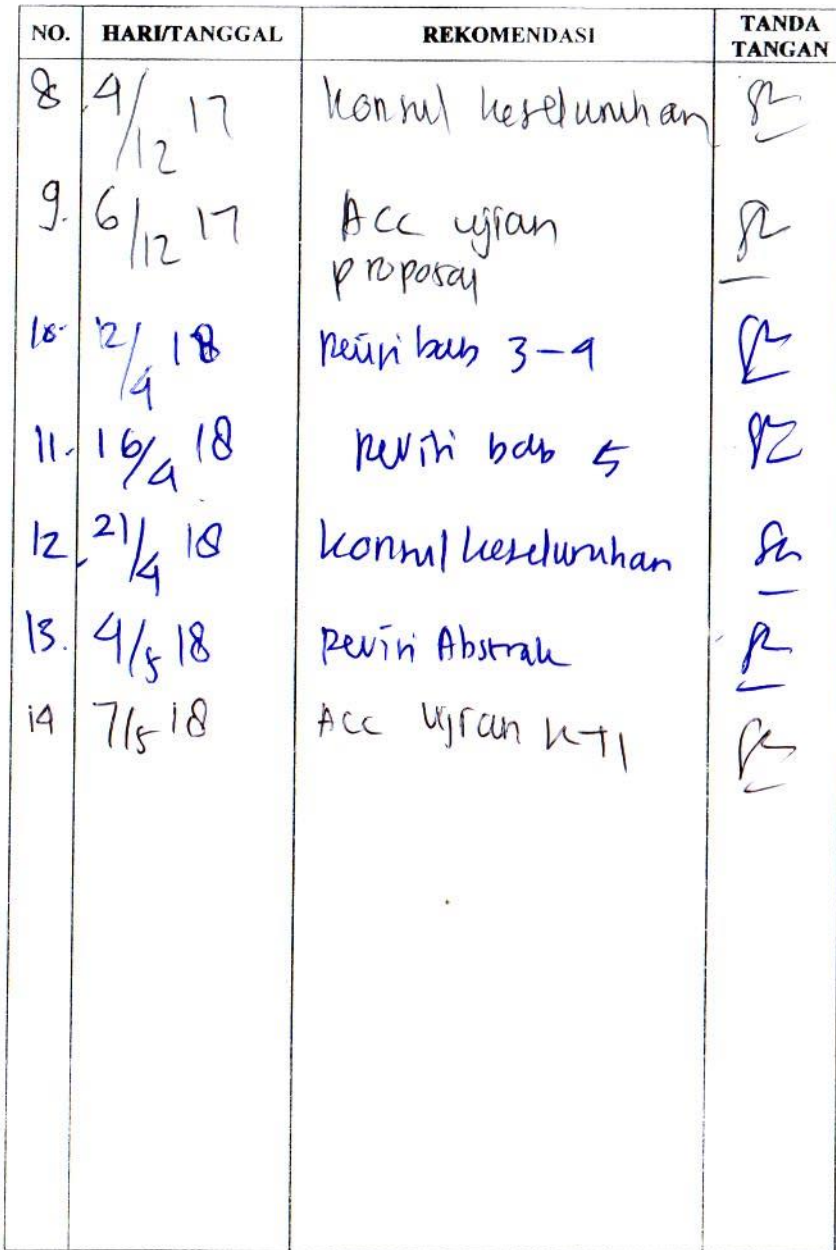 NO. HARI/TANGGAL REKOMENDASI TANDA TANGAN
8 4/12 17 Konsul keseluruhan
9. 6/12 17 Acc ujian
proposal
10. 12/4 18 Revisi bab 3-4
11. 16/4 18 Revisi bab 5
12. 21/4 18 Konsul keseluruhan
13. 4/5 18 Revisi Abstrak
14 7/5 18 Acc Ujian KTI